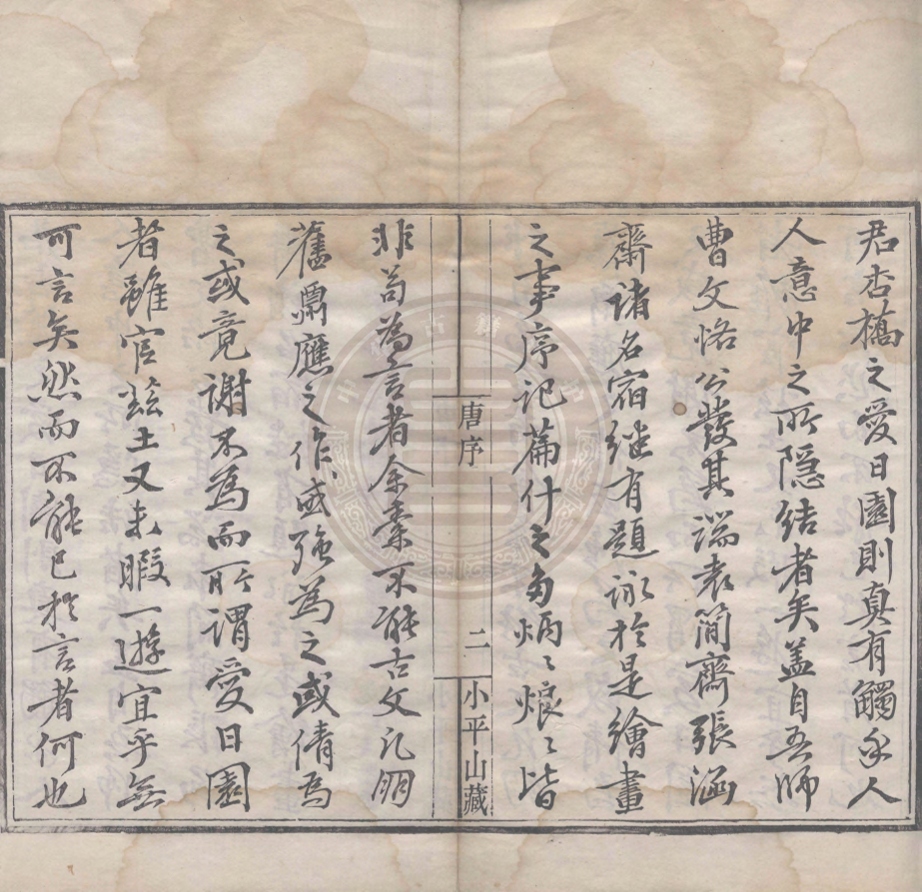 君杏橋之愛日園則真有觸乎人
人意中之所隱結者矣蓋自吾師
曹文恪公發其端袁簡齋張涵
齋諸名宿继有題詠於是繪畫
之事序記篇什之多炳〻烺〻皆
唐序
二
小平山藏
非苟為言者余素不能古文凡朋
舊需應之作或強為之或倩為
之或竟謝不為而所謂愛日園
者雖官茲土又未暇一遊宜乎無
可言矣然而不能已於言者何也